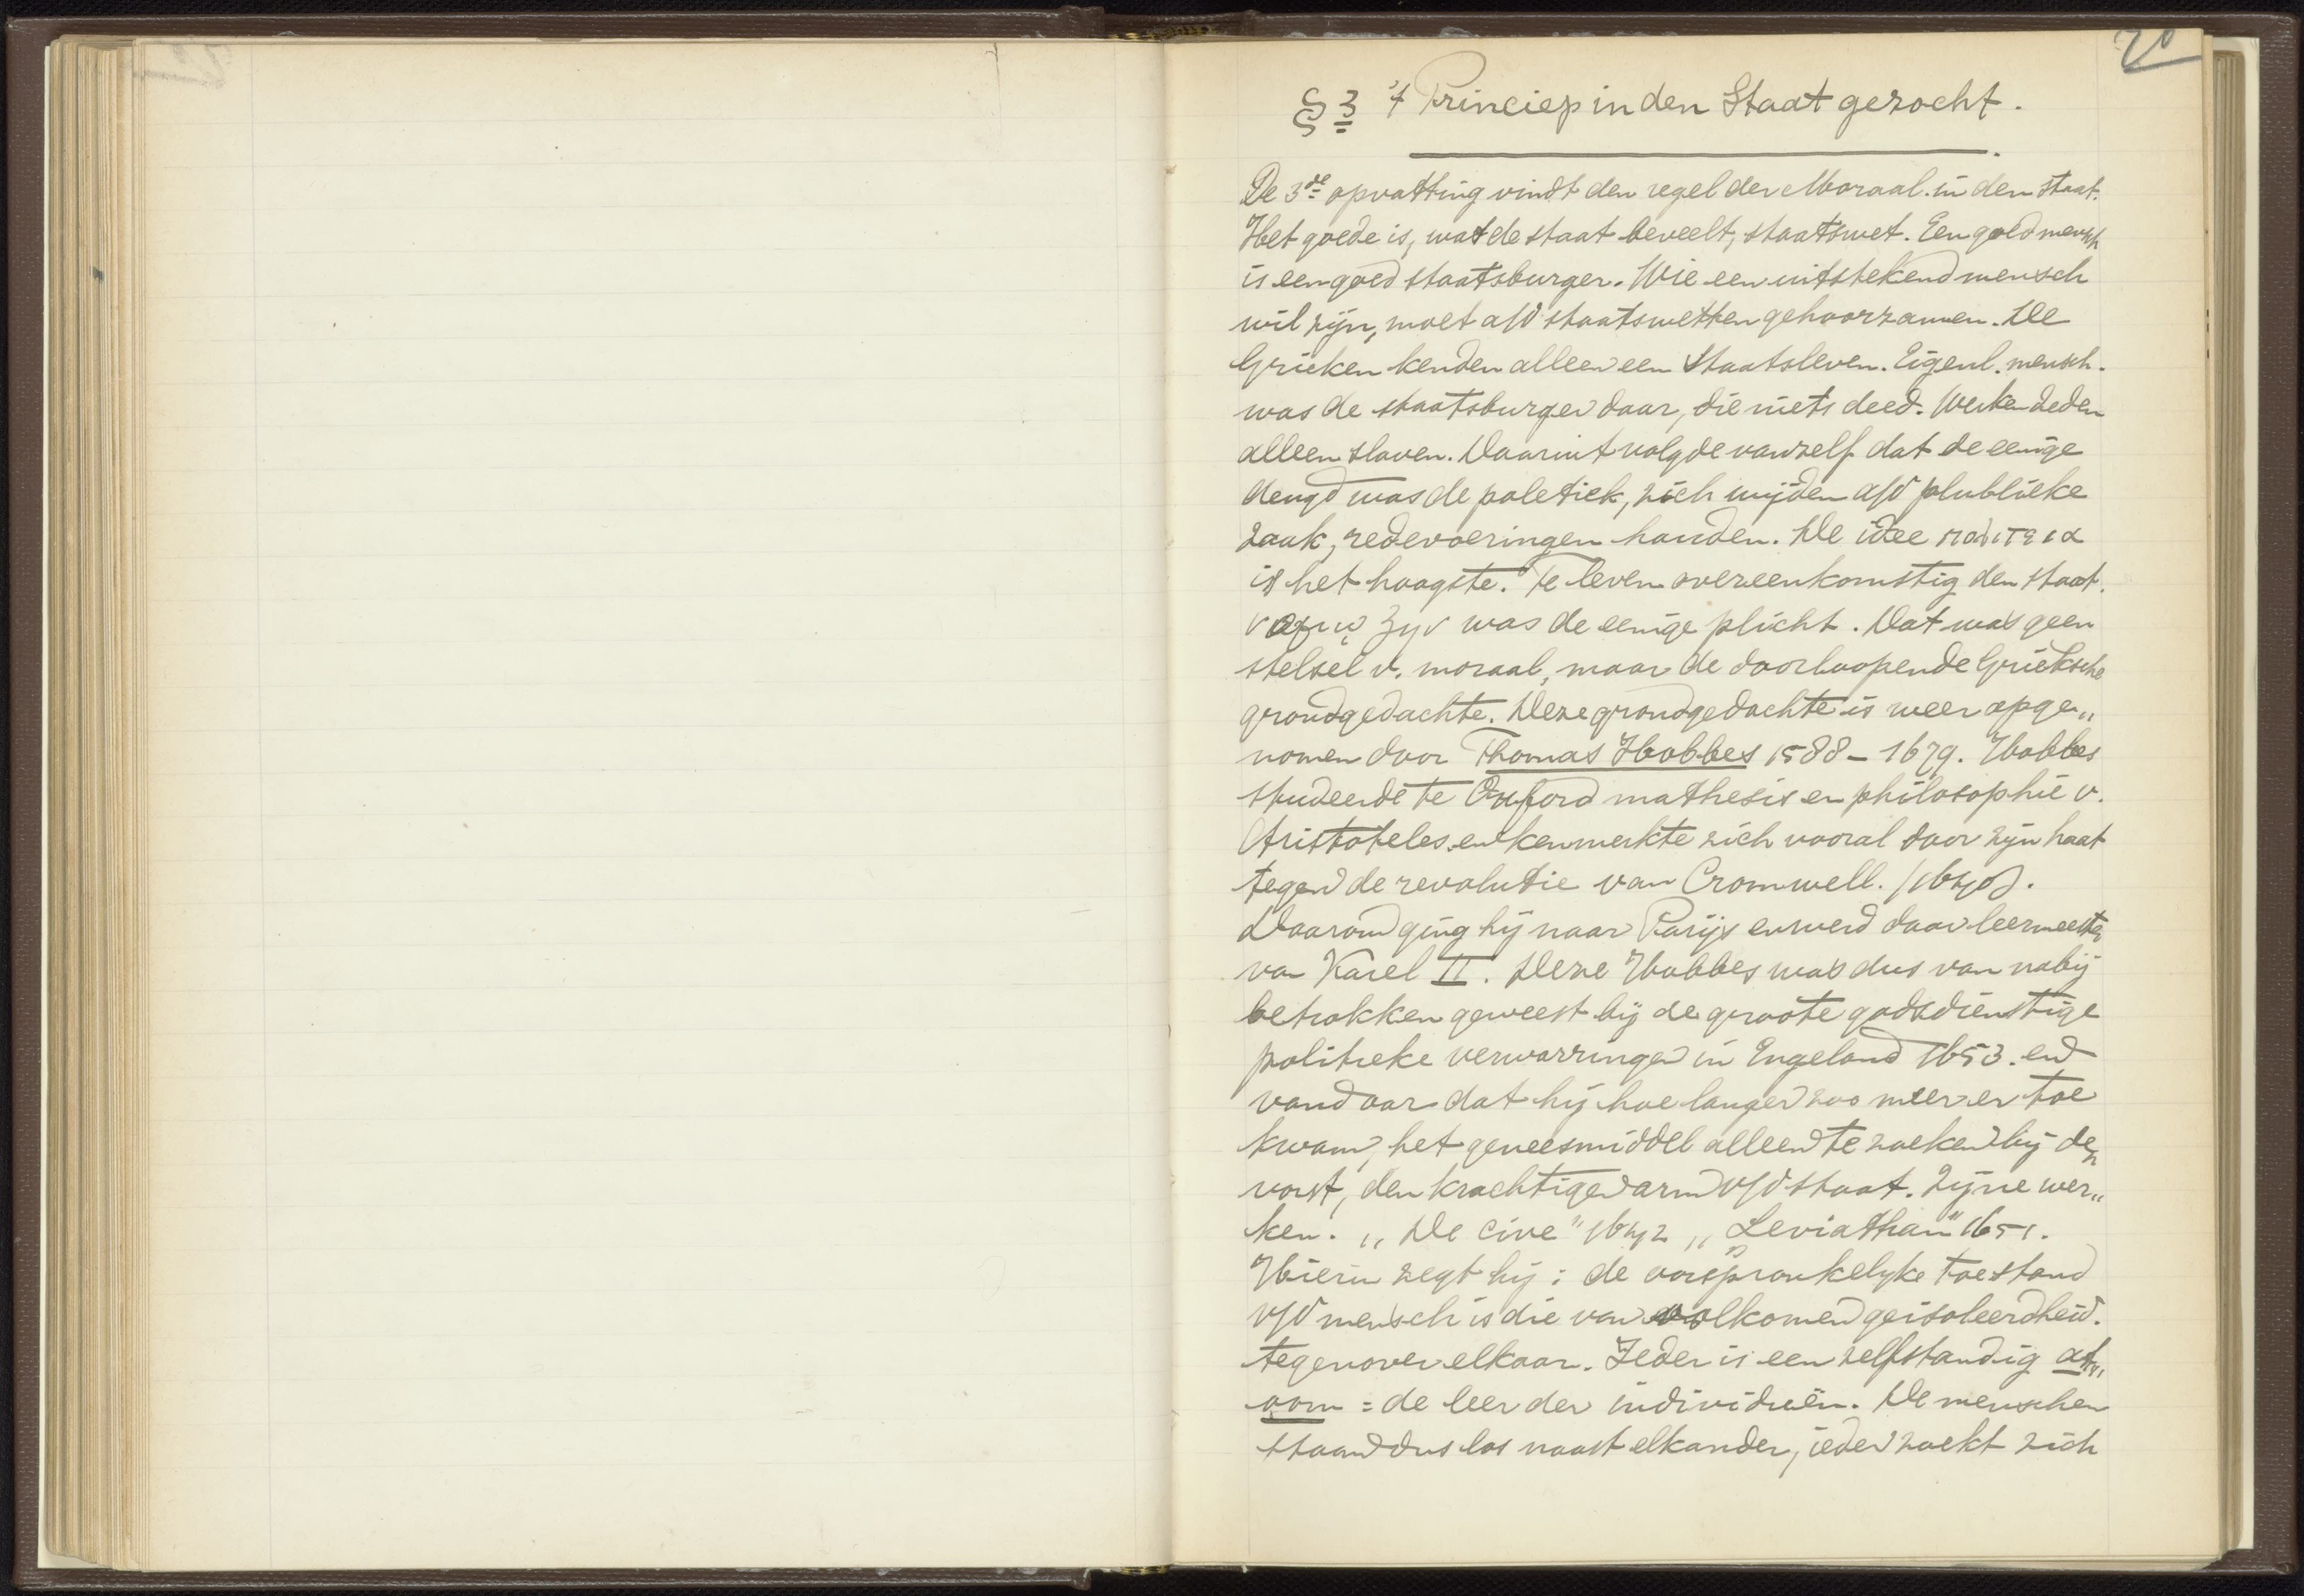 20
§ 3 't Princiep in den Staat gezocht.
De 3de opvatting vindt den regel der Moraal in den staat.
Het goede is, wat de staat beveelt, staatswet. Een goed mensch
is een goed staatsburger. Wie een uitstekend mensch
wil zijn, moet a/d staatswetten gehoorzamen. De
Grieken kenden alleen een Staatsleven. Eigenl. mensch.
was de staatsburger daar, die niets deed. Werken deden
alleen slaven. Daaruit volgde vanzelf dat de eenige
deugd was de poletiek, zich wijden a/d plublieke
zaak, redevoeringen houden. De idee πολιτεια
is het hoogste. Te leven overeenkomstig den staat.
ζην was de eenige plicht. Dat was geen
stelsel v. moraal, maar de doorloopende Grieksche
grondgedachte. Deze grondgedachte is weer opge„
nomen door Thomas Hobbes 1588 – 1679. Hobbes
studeerde te Oxford mathesis en philosophie v.
Aristoteles en kenmerkte zich vooral door zijn haat
tegen de revolutie van Cromwell. (1640).
Daarom ging hij naar Parijs en werd daar leermeester
van Karel II. Deze Hobbes was dus van nabij
betrokken geweest bij de groote godsdienstige
politieke verwarringen in Engeland 1653. en
vandaar dat hij hoe langer zoo meer er toe
kwam, het geneesmiddel alleen te zoeken bij den
vorst, den krachtigen arm v/d staat. Zijne wer„
ken. „De cive" 1642 „Leviathan" 1651.
Hierin zegt hij: de oorspronkelyke toestand
v/d mensch is die van volkomen geisoleerdheid.
tegenover elkaar. Ieder is een zelfstandig at„
oom = de leer der individuën. De menschen
staan dus los naast elkander, ieder zoekt zich